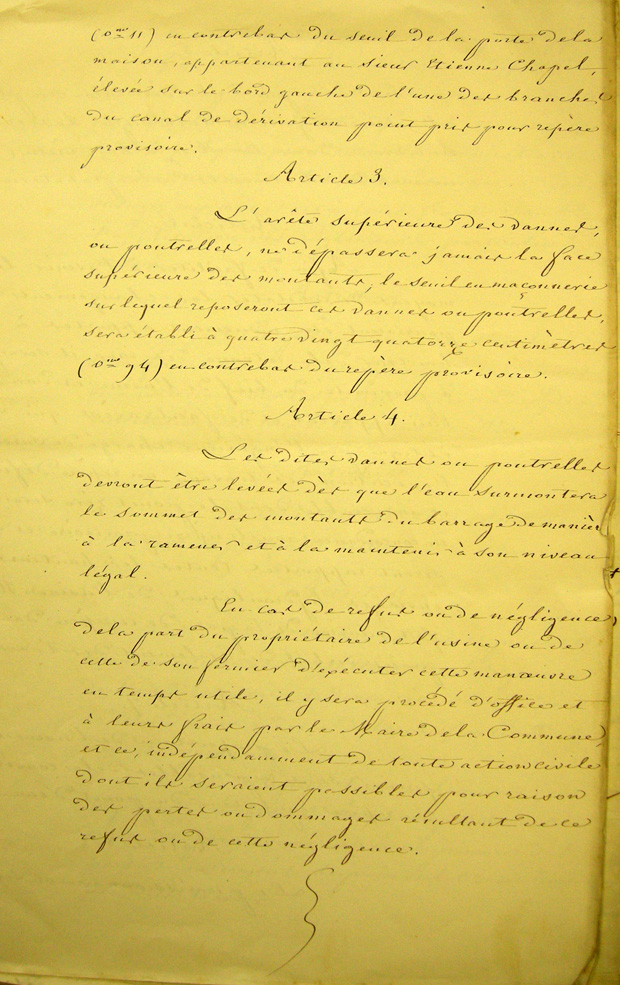 (0m 11) en contrebas du seuil de la porte de la
maison, appartenant au sieur Etienne Chapel,
élevée sur le bord gauche de l'une des branches
du canal de dérivation point pris pour repère
provisoire.
Article 3.
L'arête supérieure des vannes,
ou poutrelles, ne dépassera jamais la face
supérieure des montants, le seuil en maçonnerie
sur lequel reposeront ces vannes ou poutrelles,
sera établi à quatre vingt quatorze centimètres
(0m 94) en contrebas du repère provisoire.
Article 4.
Les dites vannes ou poutrelles
devront être levées dès que l'eau surmontera
le sommet des montants du barrage de manière
à la ramener et à la maintenir à son niveau
légal.
En cas de refus ou de négligence,
de la part du propriétaire de l'usine ou de
celle de son fermier d'exécuter cette manœuvre
en temps utile, il y sera procédé d'office et
à leurs frais par le Maire de la Commune,
et ce, indépendamment de toute action civile
dont ils seraient passibles pour raison
des pertes ou dommages résultant de ce
refus ou de cette négligence.